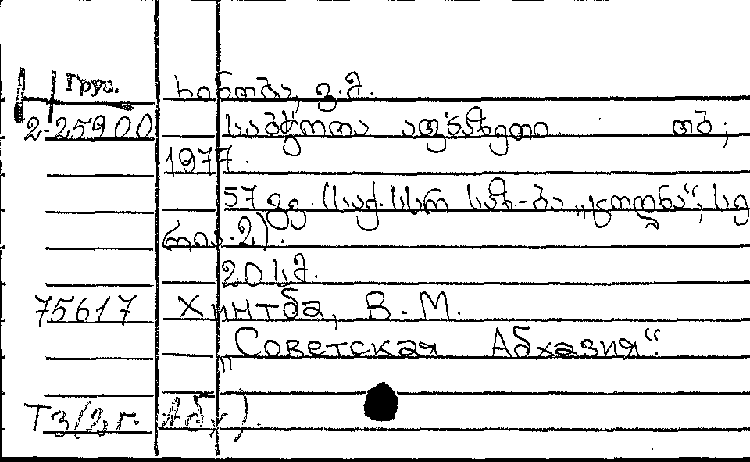 Груз.
ხინთბა, ვ.მ.
2-25900
საბჭოთა აფხაზეთი თბ.;
1977.
57 გვ. (საქ.სსრ საზ-ბა „ცოდნა“, სე
რია.2).
20 კ.
75617 Хинтба, В. М.
„Советская Абхазия“.
Абх).